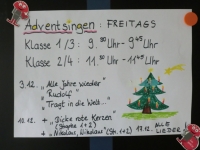 Adventsingen: FREITAGS
Klasse 1/3: 9.30 Uhr - 9.45 Uhr
Klasse 2/4: 11.30 Uhr - 11.45 Uhr
9.12. „Alle Jahre wieder“
„Rudolf“
„Tragt in die Welt...“
+ „Dicke rote Kerzen“
(Strophe 1+2)
+ „Nikolaus, Nikolaus“ (Str. 1+2) 17.12. ALLE
LIEDER!